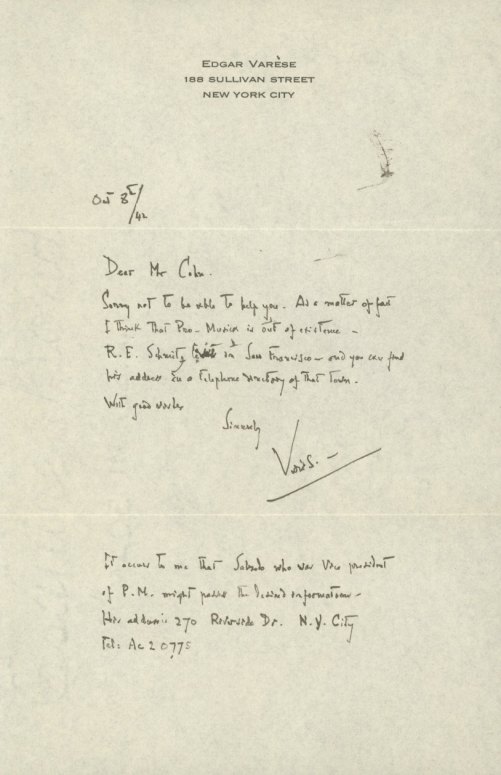 EDGAR VARÈSE
188 SULLIVAN STREET
NEW YORK CITY
Oct 8th/42
Dear Mr Cohn.
Sorry not to be able to help you. As a matter of fact
I think that Pro-Musica is out of existence –
R. E. Schmitz is in San Francisco – and you can find
his address in a telephone directory of that town.
With good wishes
Sincerely
Varèse. –
It occurs to me that Salzedo who was Vice president
of P.M. might possess the desired information –
His address: 270 Riverside Dr. N.Y. City
Tel: Ac 2 0775